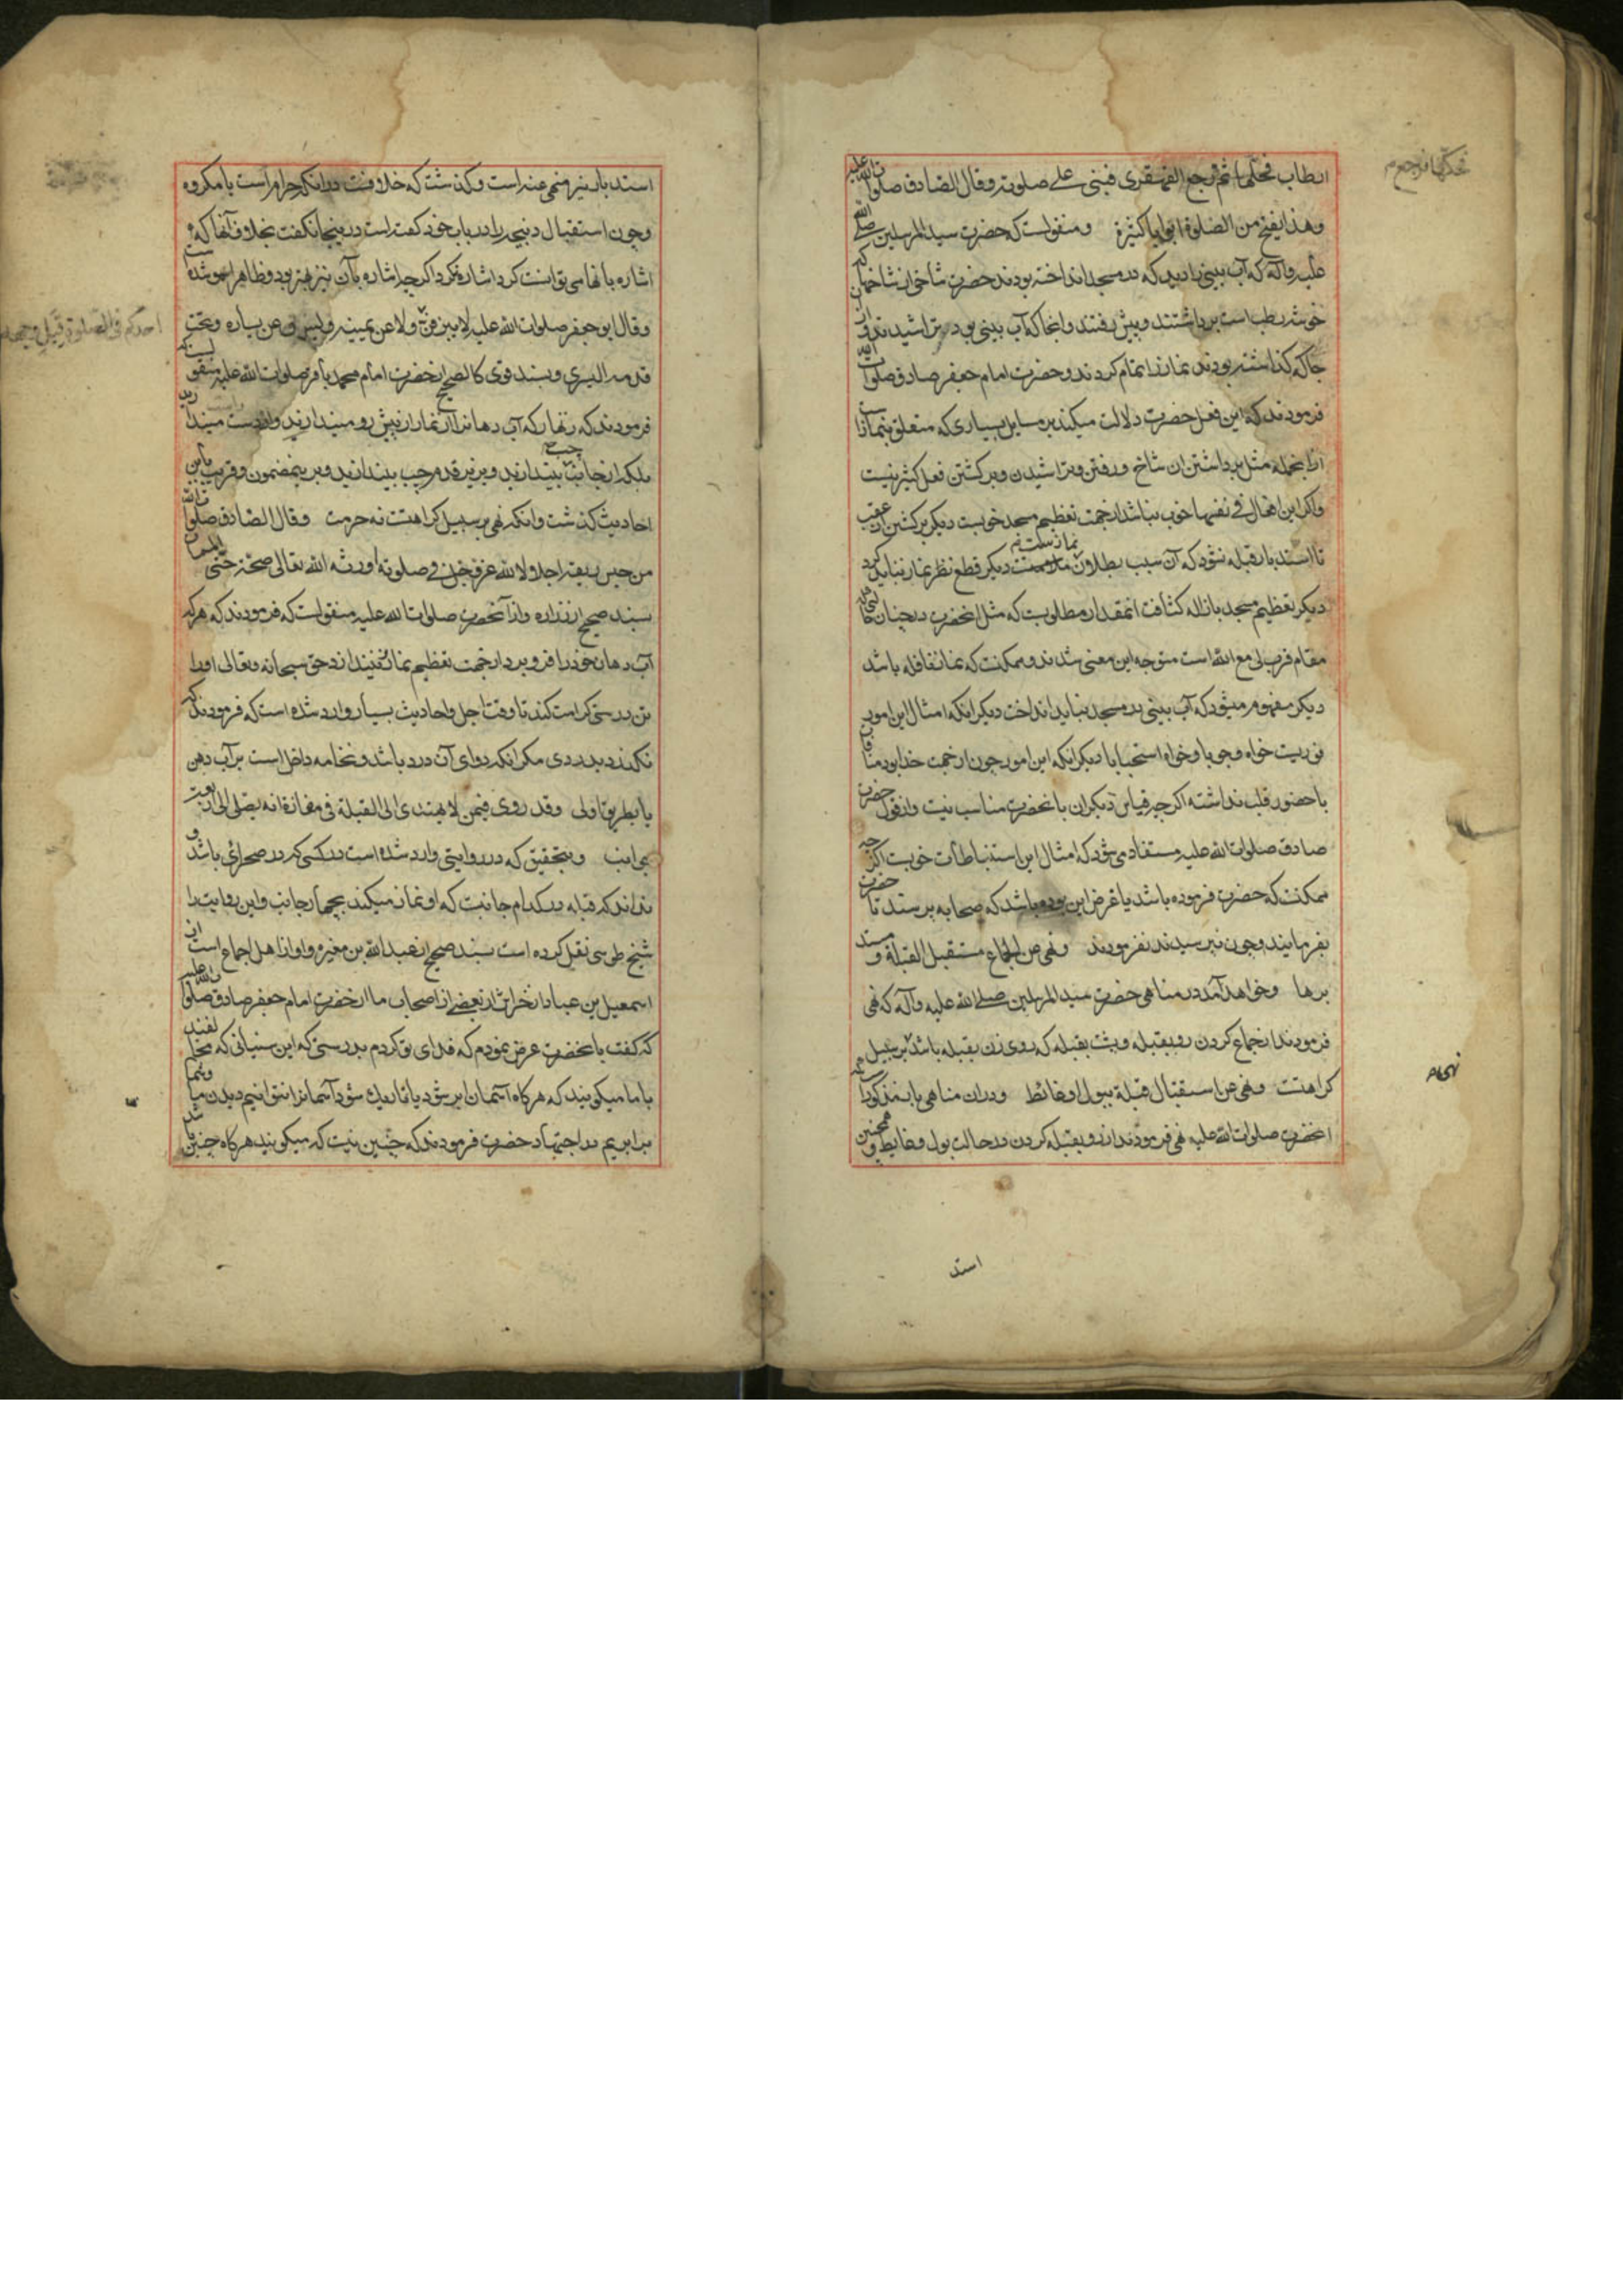 ابطاب فحكّها ثم رجع القهقرى فبنى على صلوته و قال الصادق صلوات الله عليه
و هذا يفتح من الصلوة ابوابا كثيرة و منقولست كه حضرت سيد المرسلين صلى الله
عليه و آله كه آب بينى را ديدند كه در مسجد انداخته بودند حضرت شاخى از شاخهاى كه
خوشه رطب است برداشتند و پيش رفتند و آنجا كه آب بينى بود تراشيدند و از
جا كه گذاشته بودند نماز را تمام كردند و حضرت امام جعفر صادق صلوات الله
فرمودند كه اين فعل حضرت دلالت ميكند بر مسايل بسيارى كه متعلق بنماز است
از آنجمله مثل برداشتن ان شاخ و رفتن و تراشيدن و برگشتن فعل كثير نيست
و اگر اين افعال فى نفسها خوب نباشد از جهت تعظيم مسجد خوبست ديگر برگشتن از عقب
تا استدبار قبله نشود كه آن سبب بطلان نماز است ديگر قطع نظر نماز نبايد كرد
ديگر تعظيم مسجد بازاله كثافت انمقدار مطلوبست كه مثل انحضرت در چنان حالتى كه
مقام قرب لى مع الله است متوجه اين معنى شدند و ممكنست كه نماز نافله باشد
ديگر مفهوم ميشود كه آب بينى در مسجد نبايد انداخت ديگر اينكه امثال اين امور
فوريست خواه وجوبا و خواه استحبابا ديگر انكه اين امور چون از جهت خدا بود منافات
با حضور قلب نداشته اگر چه قياس ديگران بانحضرت مناسب نيست و از قول حضرت
صادق صلوات الله عليه مستفاد مى شود كه امثال اين استنباطات خوبست اگر چه
ممكنست كه حضرت فرموده باشد يا غرض اين بوده باشد كه صحابه بپرسند تا حضرت
بفرمايند و چون نپرسيدند نفرمودند و نهى عن الجماع مستقبل القبلة و مستد
برها و خواهد آمد در مناهى حضرت سيد المرسلين صلى الله عليه و آله كه نهى
فرمودند از جماع كردن رو بقبله و پشت بقبله كه روى زن بقبله باشد بر سبيل
كراهتست و نهى عن استقبال قبلة ببول او غائط و در ان مناهى باب مذكور است كه
انحضرت صلوات الله عليه نهى فرمودند از رو بقبله كردن در حالت بول و غايط و همچنين
است
استدبار نيز منهى عنه است و گذشت كه خلافست در انكه حرام است يا مكروه
و چون استقبال و نيجه را در باب خود گفته است در اينجا نگفت بخلاف آنها كه
اشاره بانها مى توانست كرد اشاره كرد اگر چه اشاره بآن نيز بهتر بود و ظاهرا سهو شده است
و قال ابو جعفر صلوات الله عليه لا يبزقن و لا عن يمينه و ليبزق عن يساره و تحت
احدكم فى الصلوة قبل وجهه
قدمه اليسرى و بسند قوى كالصحيح از حضرت امام محمد باقر صلوات الله عليه منقولست كه
فرمودند كه زنهار كه آب دهانرا در نماز از پيش رو ميندازيد و از دست ميندازيد
بلكه از جانب چپ بيندازيد و بزير قدم چپ بيندازيد و بر ينمضمون و قريب باين
احاديث گذشت و انكه نهى بر سبيل كراهتست نه حرمت و قال الصادق صلوات الله
من حبس ريقه اجلالا لله عز و جل فى صلوته اورثه الله تعالى صحة حتى الممات
بسند صحيح از زراره و از آنحضرت صلوات الله عليه منقولست كه فرمودند كه هر كه
آب دهان خود را فرو برد از جهت تعظيم نماز و نيندازد حق سبحانه و تعالى او را
تن درستى كرامت كند تا وقت اجل و احاديث بسيار وارد شده است كه فرمودند كه
نگذرد بدردى مگر انكه دواى آن درد باشد و نخامه داخل است بر آب دهن
يا بطريق اولى و قد روى فيمن لا يهتدى الى القبلة فى مفازة انه يصلى الى اربعة
جوانب و بتحقيق كه در روايتى وارد شده است در كسى كه در صحرائى باشد و
نداند كه قبله در كدام جانبست كه او نماز ميكند بچهار جانب و اين روايت را
شيخ طوسى نقل كرده است بسند صحيح از عبد الله بن مغيره و او از اهل اجماع است از
اسمعيل بن عباد از خراش از بعضى از اصحاب ما از حضرت امام جعفر صادق صلوات الله عليه
كه گفت بانحضرت عرض نمودم كه فداى تو گردم بدرستى كه اين سنيانى كه مخالفند
با ما ميگويند كه هرگاه آسمان ابر شود يا تاريك شود آسمانرا نتوانيم ديدن ما و شما
برابريم در اجتهاد حضرت فرمودند كه چنين نيست كه ميگويند هرگاه چنين باشد